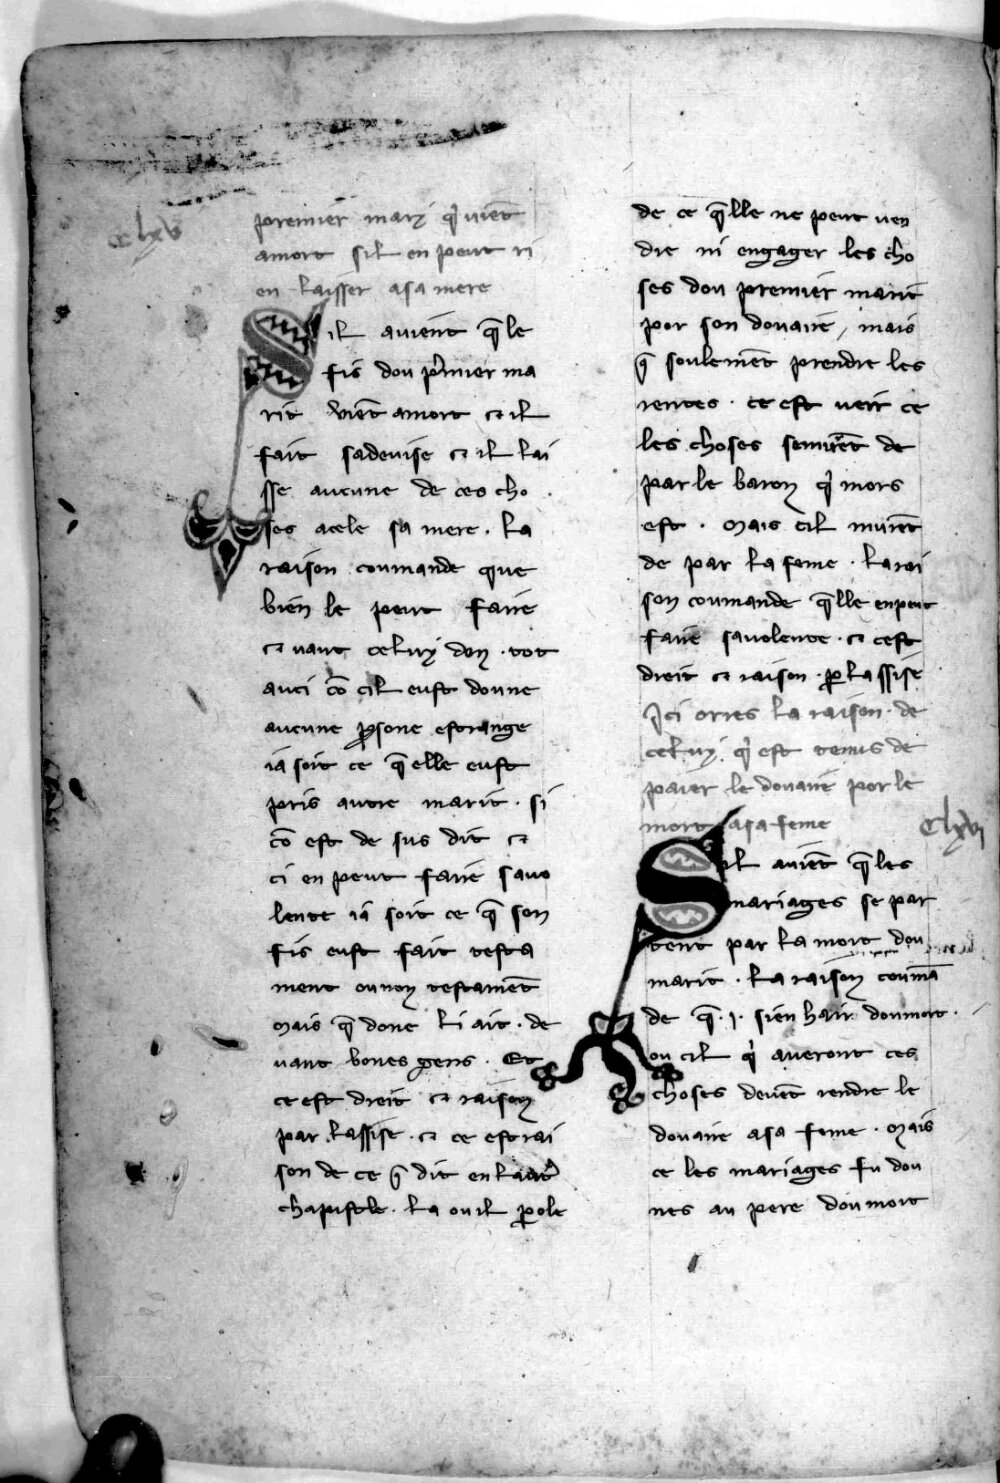 clxv
premier mary q̃ vient
amort sil en peut ri
en laisser asa mere
Sil avient q̃ le
fis dou p̃mier ma
rit vient amort et il
fait sa devise et il lai
sse aucune de ces cho
ses acele sa mere . la
raison coumande que
bien le peut faire
et vaut celuy don . tot
auci cõ cil eust donne
aucune ꝑsone estrange
ia soit ce q̃ elle eust
pris autre marit . si
cõ est de sus dit et
ci en peut faire savo
lente ia soit ce q̃ son
fis eust fait testa
ment ou non testamẽt
Mais q̃ done li ait . de
vant bones gens . Et
ce est dreit et raison
par lassise . et ce est rai
son de ce q̃ dit en lautr̃
chapistle . la ou il ꝑole
de ce q̃lle ne peut ven
dre ni engager les cho
ses dou premier marit
por son douaire / mais
q̃ soulemẽt prendre les
rentes . ce est veir ce
les choses semurẽt de
par le baron q̃ mors
est . Mais cil murẽt
de par la feme . la rai
son coumande q̃lle en peut
faire savolente . et cest
dreit et raison . ꝑ lassise
Ici orres la raison . de
celuy . q̃ est tenus de
paier le douaire por le
mort asa feme
Clxvi
Sil aviẽt q̃ les
mariages se par
tent par la mort dou
marit . la raison coumã
de q̃ .i. sien hair dou mort .
ou cil q̃ averont ces
choses devẽt rendre le
douaire asa feme . Mais
ce les mariages fu don
nes au pere dou mort